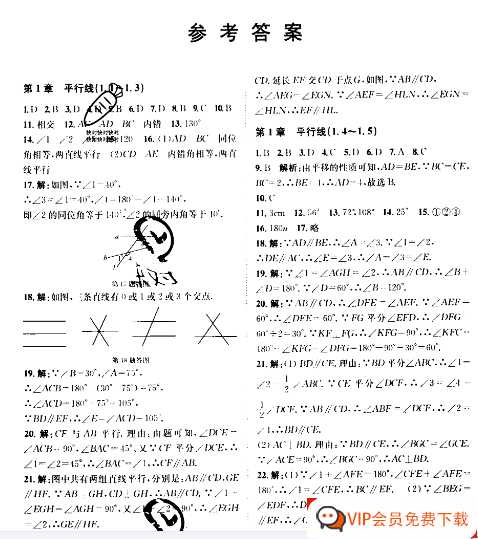 参考答案
第1章 平行线(1.1~1.3)
1.D 2.B 3.D 5.B 6.D 7.D 8.B 9.C 10.B
11.相交 12. AD BC 内错 13.130°
14. 120 16.(1)AD BC 同位
角相等,两直线平行 (2)CD AE 内错角相等,两直
线平行
17.解:如图,∵∠1=40°,
∴∠3=∠1=40°,
即∠2的同位角等于 ∠2的同旁内角等于
第17题答图
18.解:如图,三条直线有0或1或2或3个交点.
第18题答图
19.解:∵∠B=30°,∠A=75°,
∴∠ACB=180°-(30°+75°)=75°,
∴∠ACD=180°-75°=105°,
∵BD∥EF,∴∠E=∠ACD=105°.
20.解:CF与AB平行.理由:由题可知,∠DCE=
∠ACB=90°,∠BAC=45°,又∵CF平分∠DCE,∴
∠1=∠2=45°,∴∠BAC=∠1,∴CF∥AB.
21.解:图中共有两组直线平行,分别是:AB∥CD,GE
∥HF.∵AB⊥GH,CD⊥GH,∴AB∥CD,∵∠1=
∠EGH=∠AGH=90°,
=∠2,∴GE∥HF.
CD.延长EF交CD于点G,如图,∵AB∥CD,
∴∠AEG=∠EGN.∵∠AEF=∠HLN,∴∠EGN=
∠HLN,∴EF∥HL.
第1章 平行线(1.4~1.5)
1.B 2.B 3.D 4.C 5.D 6.D 7.A 8.D
9.B 解析:由平移的性质可知,AD=BE.∵BC=CE,
BC=2,∴BE=4,∴AD=4,故选B.
10.C
11.3cm 12.56° 13.72°,108° 14.25° 15.①②③
16.180n 17.略
18.解:∵AD∥BE,∴∠A=∠3,∵∠1=∠2,
∴DE∥AC,∴∠E=∠3,∴∠A=∠3=∠E.
19.解:∵∠1=∠AGH=∠2,∴AB∥CD,∴∠B+
∠D=180°,∵∠D=60°,∴∠B=120°.
20.解:∵AB∥CD,∴∠DFE=∠AEF,∵∠AEF=
60°,∴∠DFE=60°.∵FG平分∠EFD,∴∠DFG=
60°÷2=30°,∵KF⊥FG,∴∠KFG=90°,∴∠KFC=
180°-∠KFG-∠DFG=180°-90°-30°=60°.
21.解:(1)BD∥CE.理由:∵BD平分∠ABC,∴∠1=
∠2=1/2∠ABC,∵CE平分∠DCF,∴∠3=∠4=
1/2∠DCF,∵AB∥CD,∴∠ABF=∠DCF,∴∠2=
∠4,∴BD∥CE.
(2)AC⊥BD.理由:∵BD∥CE,∴∠BGC=∠GCE.
∵∠ACE=90°,∴∠BGC=90°,∴AC⊥BD.
22.解:(1)∵∠1+∠AFE=180°,∠CFE+∠AFE=
180°,∴∠1=∠CFE,∴BC∥EF. (2)∵∠BEG=
∠EDF,∴
∥EF,∴∠
VIP会员免费下载